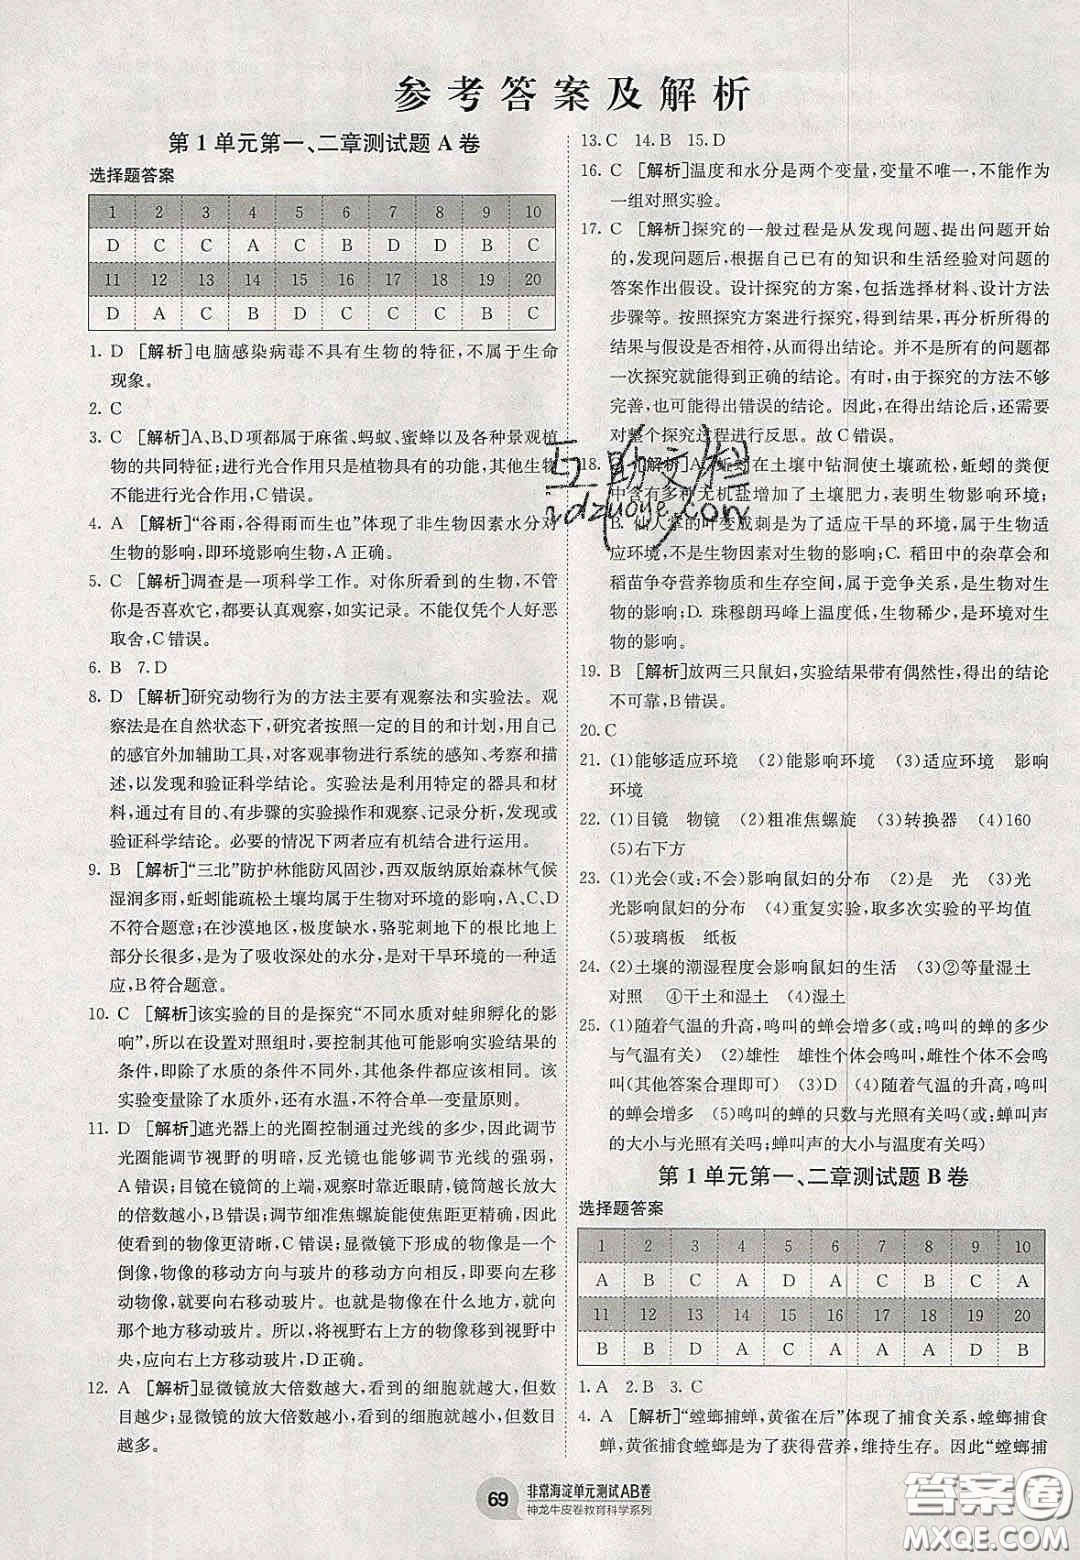 参考答案及解析
第1单元第一、二章测试题A卷
选择题答案
1 2 3 4 5 6 7 8 9 10
D C C A C B D D B C
11 12 13 14 15 16 17 18 19 20
D A C B D C C C B C
1. D [解析]电脑感染病毒不具有生物的特征,不属于生命
现象。
2. C
3. C [解析]A、B、D项都属于麻雀、蚂蚁、蜜蜂以及各种景观植
物的共同特征;进行光合作用只是植物具有的功能,其他生物
不能进行光合作用,C错误。
4. A [解析]“谷雨,谷得雨而生也”体现了非生物因素水分对
生物的影响,即环境影响生物,A正确。
5. C [解析]调查是一项科学工作。对所看到的生物,不管
你是否喜欢它,都要认真观察,如实记录。不能仅凭个人好恶
取舍,C错误。
6. B 7. D
8. D [解析]研究动物行为的方法主要有观察法和实验法。观
察法是在自然状态下,研究者按照一定的目的和计划,用自己
的感官外加辅助工具,对客观事物进行系统的感知、考察和描
述,以发现和验证科学结论。实验法是利用特定的器具和材
料,通过有目的、有步骤的实验操作和观察、记录分析,发现或
验证科学结论。必要的情况下两者应有机结合进行运用。
9. B [解析]“三北”防护林能防风固沙,西双版纳原始森林气候
湿润多雨,蚯蚓能疏松土壤均属于生物对环境的影响,A、C、D
不符合题意;在沙漠地区,极度缺水,骆驼刺地下的根比地上
部分长很多,是为了吸收深处的水分,是对干旱环境的一种适
应,B符合题意。
10. C [解析]该实验的目的是探究“不同水质对蛙卵孵化的影
响”,所以在设置对照组时,要控制其他可能影响实验结果的
条件,即除了水质的条件不同外,其他条件都相同。该
实验变量除了水质外,还有水温,不符合单一变量原则。
11. D [解析]遮光器上的光圈控制通过光线的多少,因此调节
光圈能调节视野的明暗,反光镜也能用来调节光线的强弱,
A错误;目镜在镜筒的上端,观察时靠近眼睛,目镜越长放大
的倍数越小,B错误;调节细准焦螺旋,能使焦距更精确,所看
到的物像更清晰,C错误;显微镜下形成的物像是一个
倒像,物像的移动方向与玻片的移动方向相反,如要向左移动
物像,就要向右移动玻片。也就是物像在什么地方,就往
那个地方移动玻片。所以,将视野右上方的物像移到视野中
央,应向右上方移动玻片,D正确。
12. A [解析]显微镜放大倍数越大,看到的细胞就越大,但数
目越少;显微镜的放大倍数越小,看到的细胞就越小,但数目
越多。
13. C 14. B 15. D
16. C [解析]温度和水分是两个变量,变量不唯一,不能作为
一组对照实验。
17. C [解析]探究的一般过程是从发现问题、提出问题开始
的,发现问题后,根据自己已有的知识和生活经验对问题的
答案作出假设。设计探究的方案,包括选择材料、设计方法
步骤等。按照探究方案进行探究,得到结果,再分析所得的
结果与假设是否相符,从而得出结论。并不是所有的问题都
一次探究就能得到正确的结论。有时,由于探究的方法不够
完善,也可能得出错误的结论。因此,在得出结论后,还需要
对整个探究过程进行反思。故C错误。
18. C [解析]A. 蚯蚓在土壤中钻洞使土壤疏松,蚯蚓的粪便
中含有多种无机盐增加了土壤肥力,表明生物影响环境;
B. 仙人掌的叶变成刺是为了适应干旱的环境,属于生物适
应环境,不是生物因素对生物的影响;C. 稻田中的杂草会和
稻苗争夺营养物质和生存空间,属于竞争关系,是生物对生
物的影响;D. 珠穆朗玛峰上温度低,生物稀少,是环境对生
物的影响。
19. B [解析]放两三只鼠妇,实验结果带有偶然性,得出的结论
不可靠,B错误。
20. C
21. (1)能够适应环境 (2)能影响环境 (3)适应环境 影响
环境
22. (1)目镜 物镜 (2)粗准焦螺旋 (3)转换器 (4)160
(5)右下方
23. (1)光会(或:不会)影响鼠妇的分布 (2)是 光 (3)光
光影响鼠妇的分布 (4)重复实验,取多次实验的平均值
(5)玻璃板 纸板
24. (2)土壤的潮湿程度会影响鼠妇的生活 (3)②等量湿土
对照 ④干土和湿土 (4)湿土
25. (1)随着气温的升高,鸣叫的蝉会增多(或:鸣叫的蝉的多少
与气温有关) (2)雄性 雄性个体会鸣叫,雌性个体不会鸣
叫(其他答案合理即可) (3)D (4)随着气温的升高,鸣叫的
蝉会增多 (5)鸣叫的蝉的只数与光的强弱有关吗(或:蝉叫声
的大小与光照有关吗;蝉叫声的大小与温度有关吗)
第1单元第一、二章测试题B卷
选择题答案
1 2 3 4 5 6 7 8 9 10
A B C A D A C B C A
11 12 13 14 15 16 17 18 19 20
B B D A C A A B D B
1. A 2. B 3. C
4. A [解析]“螳螂捕蝉,黄雀在后”体现了捕食关系,螳螂捕食
蝉,黄雀捕食螳螂是为了获得营养,维持生存。因此“螳螂捕
69 非常海淀单元测试AB卷
神龙牛皮卷教育科学系列
互助文档
idzuoye.com
答案圈
MXQE.COM